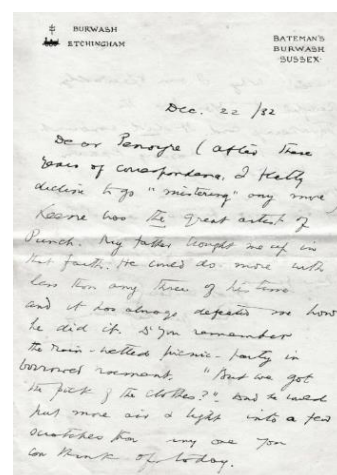 BURWASH
ETCHINGHAM
BATEMAN'S
BURWASH
SUSSEX
Dec. 22 /32
Dear Penoyre (after these
years of correspondence I flatly
decline to go "mistering" any more)
Keene was the great artist of
Punch. My father brought me up in
that faith. He could do more with
less than any three of his time
and it has always defeated me how
he did it. D'you remember
the rain-wetted picnic-party in
borrowed raiment. "But we got
the pick of the clothes?" And he could
put more air & light into a few
scratches than any one you
can think of today.